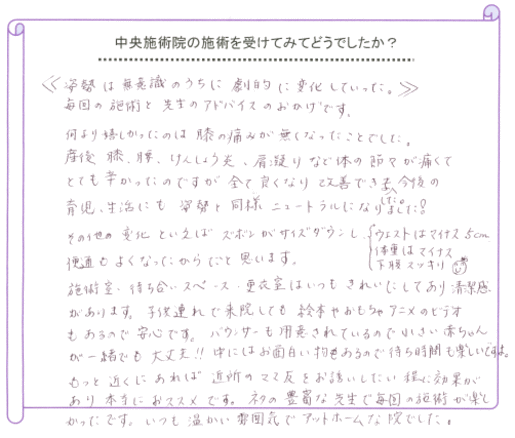 中央施術院の施術を受けてみてどうでしたか？
≪姿勢は無意識のうちに劇的に変化していった。≫
毎回の施術と先生のアドバイスのおかげです。
何より嬉しかったのは膝の痛みが無くなったことでした。
産後 膝、腰、けんしょう炎、肩凝りなど体の節々が痛くて
とても辛かったのですが全て良くなり改善できました。今後の
育児、生活にも姿勢と同様ニュートラルになりました！
その他の変化といえばズボンがサイズダウンし、
ウェストはマイナス5cm
体重はマイナス
下腹スッキリ
便通もよくなったからだと思います。
施術室・待ち合いスペース・更衣室はいつもきれいにしてあり清潔感
があります。子供連れで来院しても絵本やおもちゃアニメのビデオ
もあるので安心です。バウンサーも用意されているので小さい赤ちゃん
が一緒でも大丈夫！！中にはお面白い物もあるので待ち時間も楽しいですよ。
もっと近くにあれば近所のママ友をお誘いしたい程に効果が
あり本当におススメです。ネタの豊富な先生で毎回の施術が楽し
かったです。いつも温かい雰囲気でアットホームな院でした。